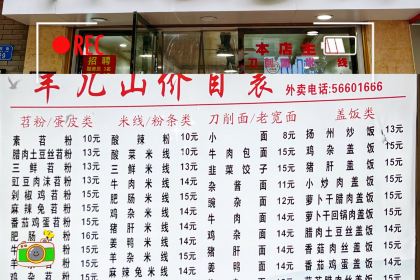 REC
招聘
本店主
刀削面 线
羊儿山价目表
外卖电话:56601666
苕粉/蛋皮类 米线/粉条类 刀削面/老宽面 盖饭类
素苕粉 10元 酸辣粉 10元 小面 8元 扬州炒饭 13元
腊肉土豆丝苕粉 13元 酸菜米线 13元 牛肉包面 15元 鸡杂盖饭 15元
三鲜苕粉 13元 三鲜米线 13元 韭菜饺子 15元 猪肝盖饭 15元
豇豆肉沫苕粉 15元 牛肉米线 14元 杂酱面 11元 小炒肉盖饭 15元
剁椒鸡苕粉 15元 肥肠米线 14元 豌杂面 12元 萝卜干腊肉盖饭 15元
麻辣兔苕粉 15元 鸡杂米线 14元 牛肉面 14元 萝卜干回锅肉盖饭 15元
番茄鸡蛋苕粉 15元 猪肝米线 14元 肥肠面 14元 番茄鸡蛋盖饭 15元
肥肠苕粉 15元 姜鸭米线 14元 鸡杂面 14元 香菇肉丝盖饭 15元
牛肉苕粉 15元 鸡杂米线 14元 猪肝面 14元 青椒肉丝盖饭 15元